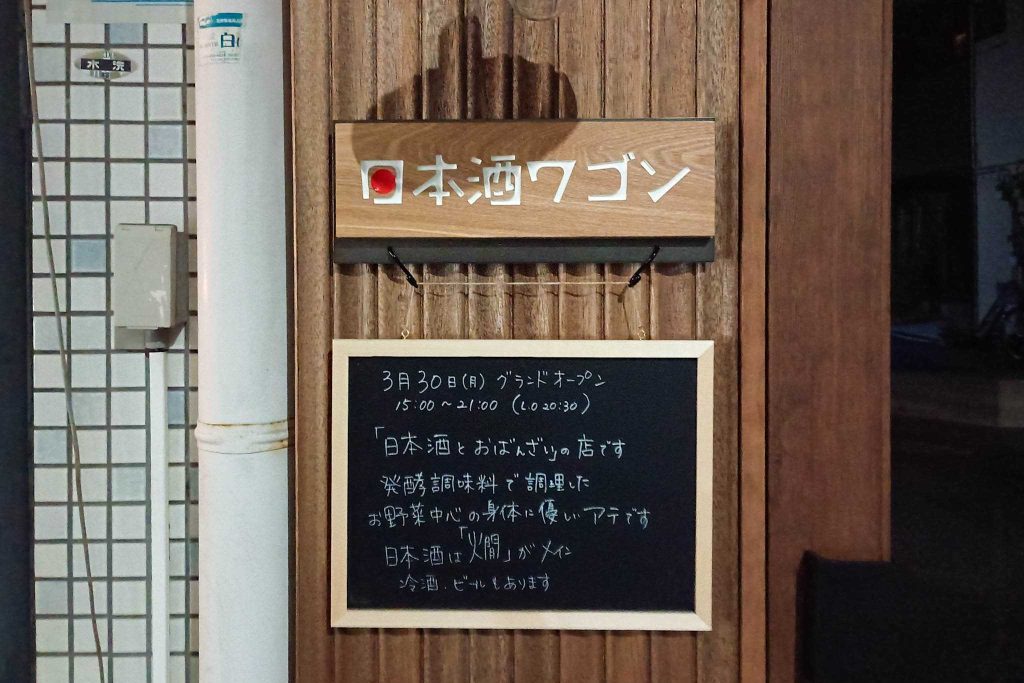 水洗
白
日本酒ワゴン
3月30日(月) グランドオープン
15:00～21:00 (L.O 20:30)
「日本酒とおばんざい」の店です
発酵調味料で調理した
お野菜中心の身体に優しいアテです
日本酒は「火間」がメイン
冷酒.ビールもあります